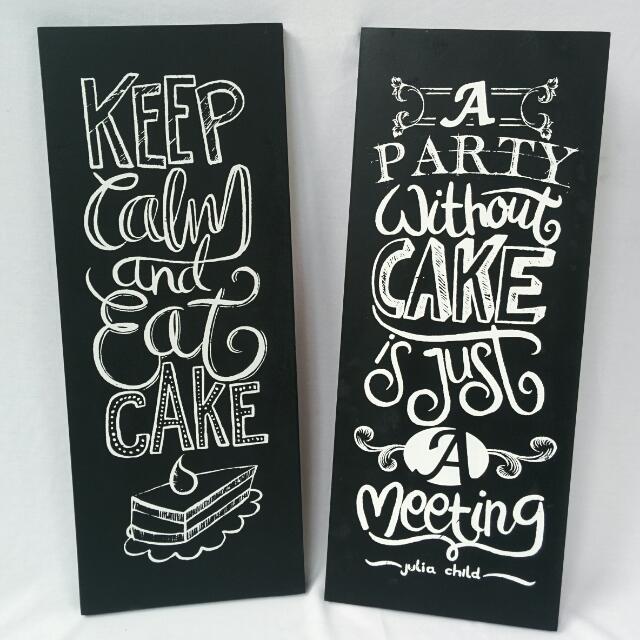 KEEP
Calm
and
Eat
CAKE
A
PARTY
Without
CAKE
is just
A
Meeting
julia child